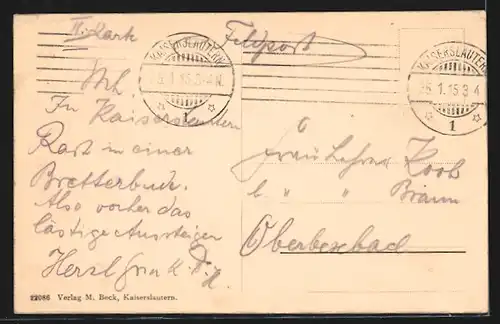 II. Karte
Feldpost
KAISERSLAUTERN
25.1.15.3-4N.
1
KAISERSLAUTERN
25.1.15.3-4
1
In Kaiserslautern
Rast in einer
Bretterbude.
Also vorher das
lästige Aussteigen
Herzl.
Frau Lehrer Koob
b. " " Braun
Oberbexbach
22086 Verlag M. Beck, Kaiserslautern.